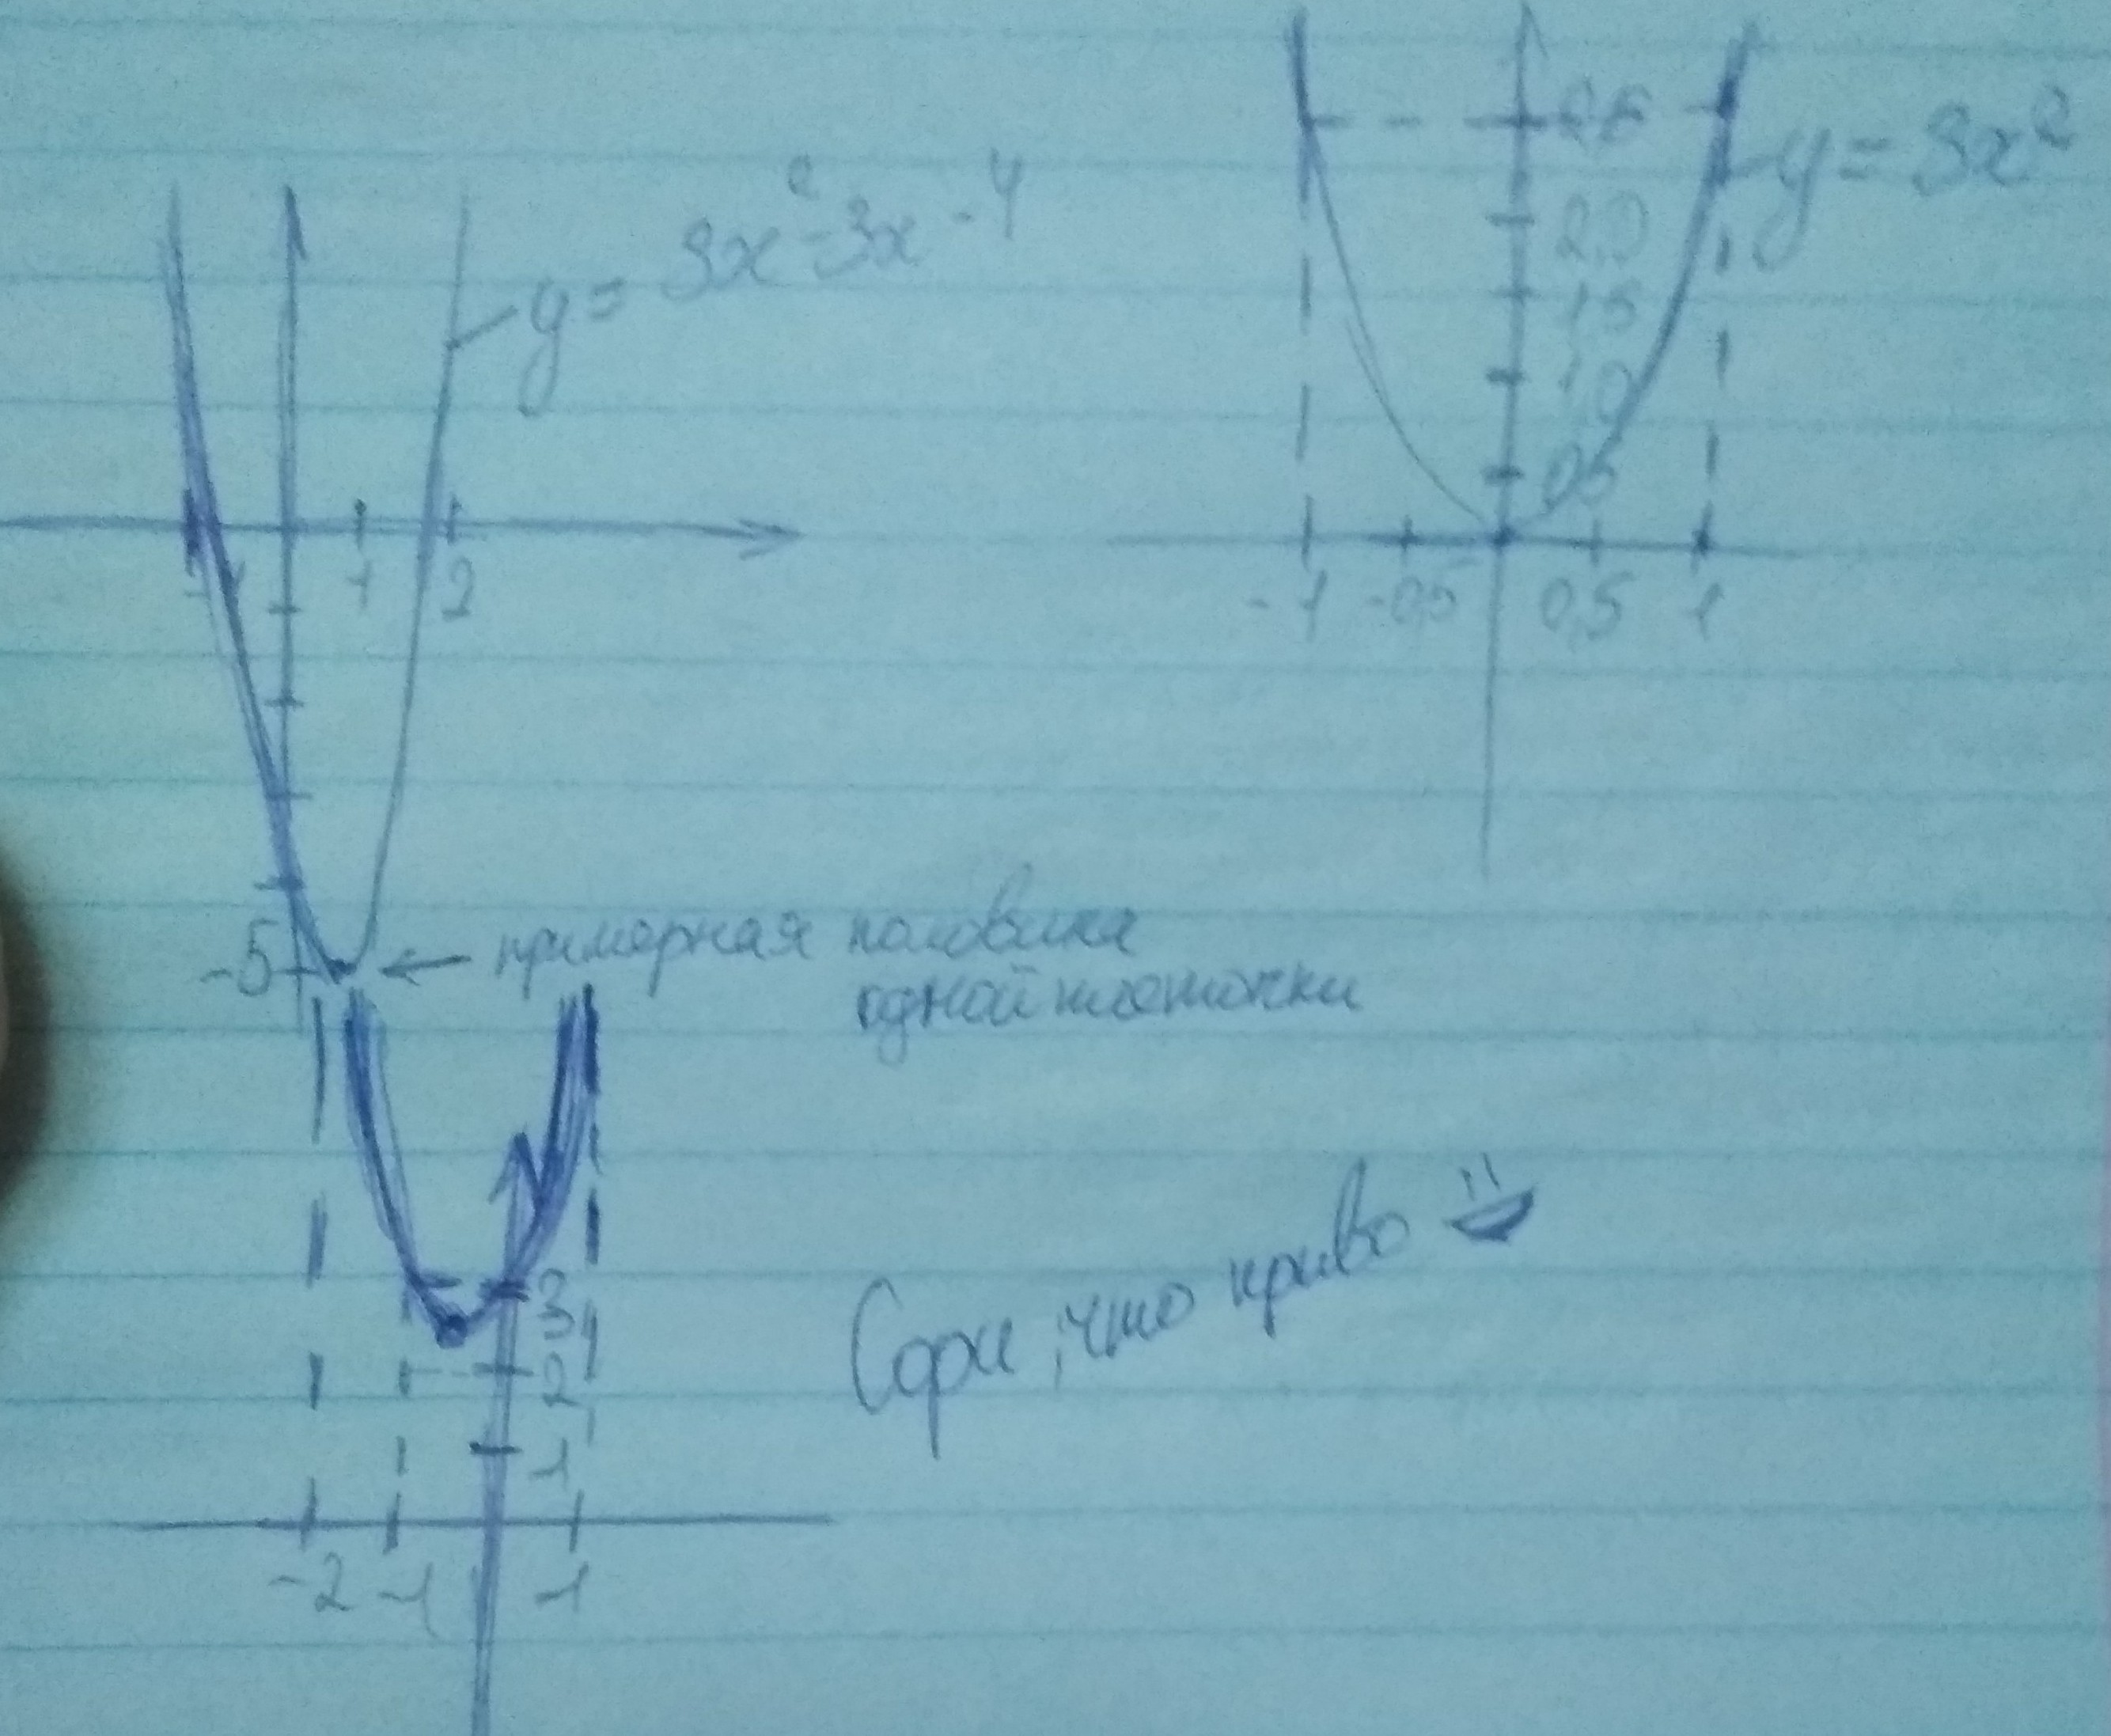 y = 3x²-3x-4
1 2
-5
2,5
y = 3x²
2,0
1,5
1,0
0,5
-1 -0,5 0,5 1
примерная половина
одной клеточки
3
2
1
-2 -1 1
Сори, что криво